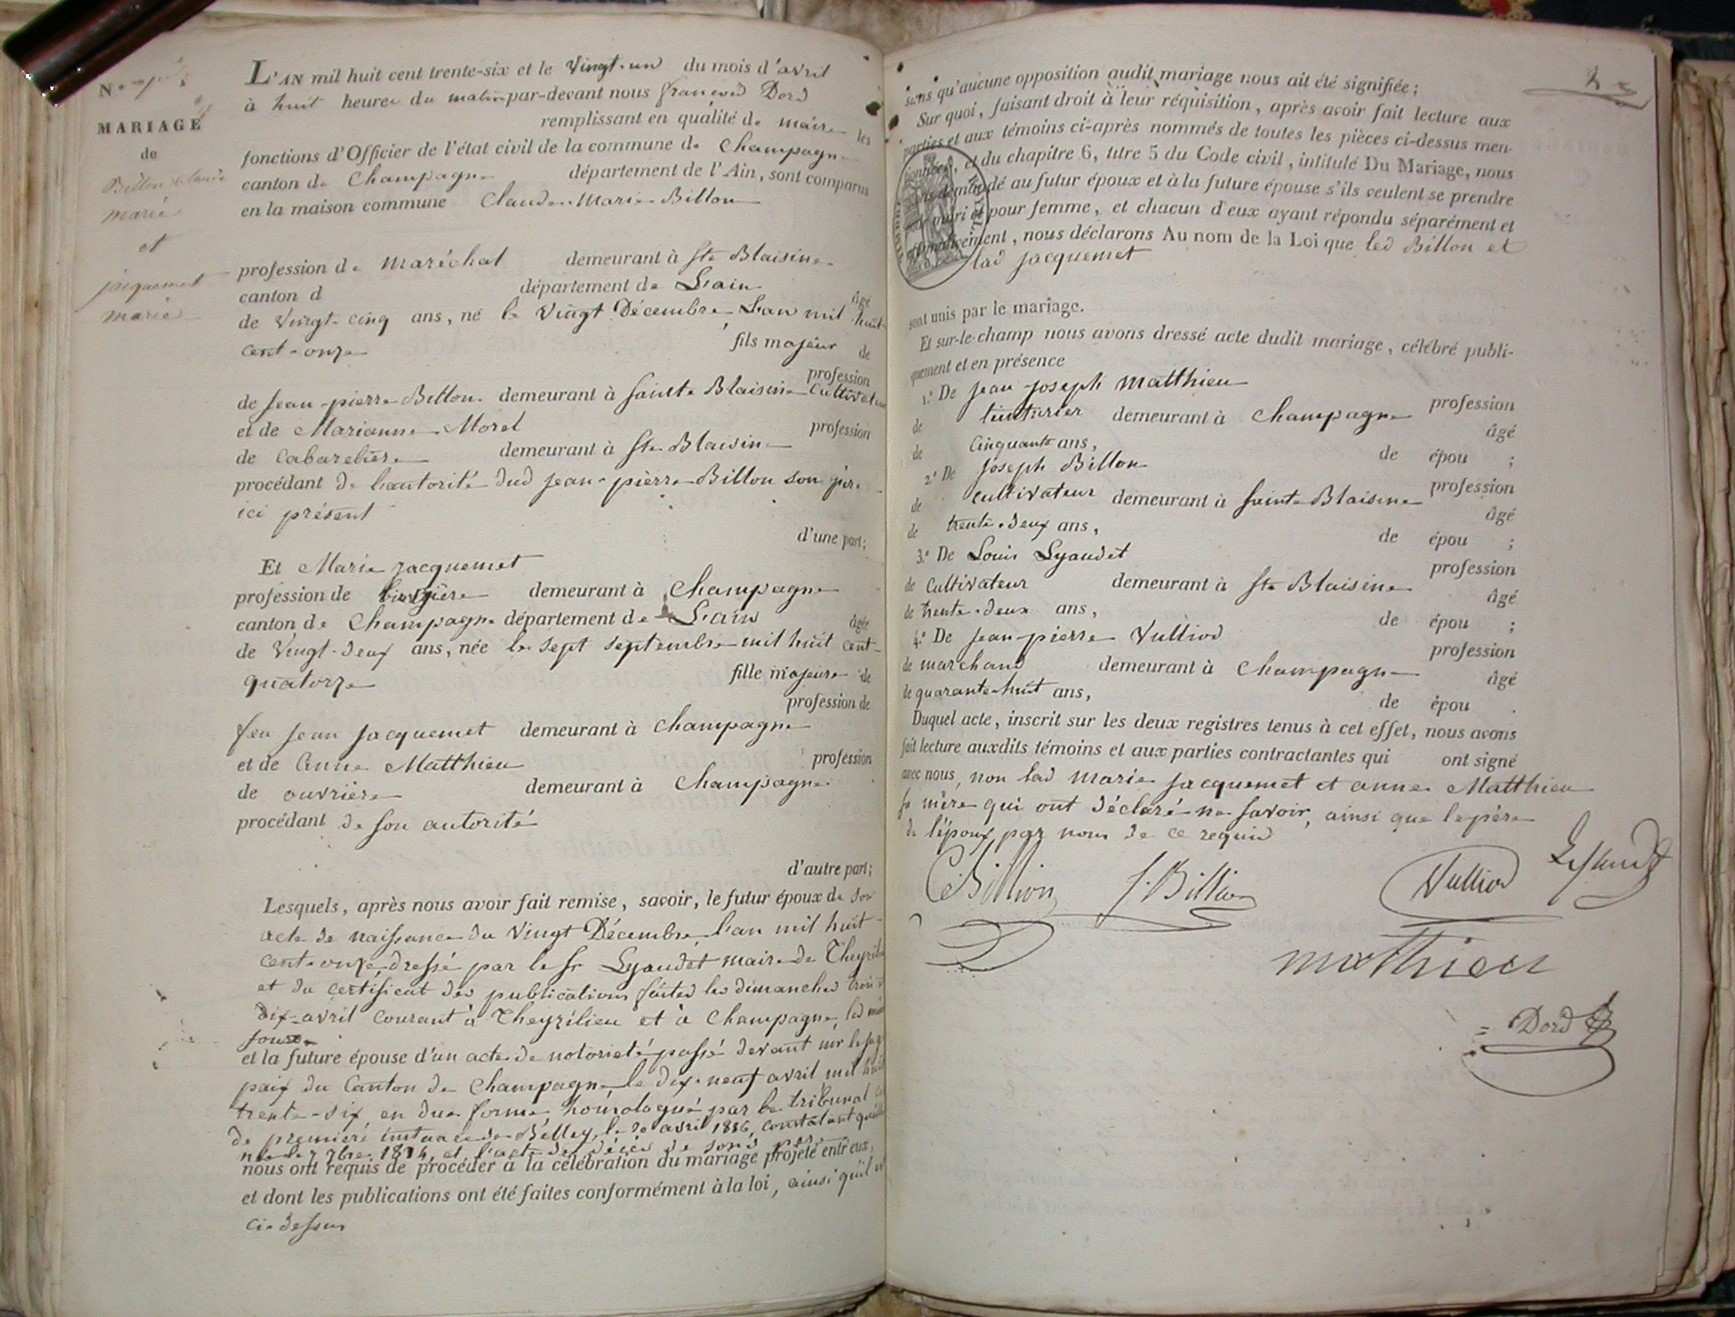 N.o
MARIAGE
de
Billon Claude
marie
et
jacquemet
marie
L'AN mil huit cent trente-six et le Vingt-un du mois d'avril
à huit heures du matin par-devant nous françois Dord
remplissant en qualité de maire les
fonctions d'Officier de l'état civil de la commune de Champagne
canton de Champagne département de l'Ain, sont comparus
en la maison commune Claude-Marie Billon
profession de Maréchal demeurant à Ste Blaisine
canton d département de L'ain âgé
de Vingt-cinq ans, né le Vingt Décembre L'an mil huit
cent-onze fils majeur de
profession
de Jean-pierre Billon demeurant à Sainte Blaisine Cultivateur
et de Marianne Morel profession
de Cabaretière demeurant à Ste Blaisine
procédant de l'autorité dud Jean-pierre Billon son père
ici présent
d'une part;
Et Marie Jacquemet
profession de demeurant à Champagne
canton de Champagne département de L'ain âgée
de Vingt-deux ans, née le sept septembre mil huit cent-
quatorze fille majeure de
profession de
feu Jean Jacquemet demeurant à Champagne
et de Anne Matthieu profession
de ouvrière demeurant à Champagne
procédant de son autorité
d'autre part;
Lesquels, après nous avoir fait remise, savoir, le futur époux de son
acte de naissance du Vingt Décembre L'an mil huit
cent-onze dressé par le sr Lyaudet maire de Theyrilieu
et du certificat des publications faites les dimanches trois
dix-avril courant à Theyrilieu et à Champagne,
et la future épouse d'un acte de notorieté passé devant mr le juge
paix du Canton de Champagne le dix-neuf avril mil huit
trente-six en due forme homologué par le tribunal
de première instance de Belley, le 20 avril 1836, constatant qu'elle
née le 7 7bre 1814, et l'acte de décès de son père
nous ont requis de procéder à la célébration du mariage projeté entr'eux,
et dont les publications ont été faites conformément à la loi, ainsi qu'il est
ci-dessus
sans qu'aucune opposition audit mariage nous ait été signifiée;
Sur quoi, faisant droit à leur réquisition, après avoir fait lecture aux
parties et aux témoins ci-après nommés de toutes les pièces ci-dessus men-
tionnées, et du chapitre 6, titre 5 du Code civil, intitulé Du Mariage, nous
avons demandé au futur époux et à la future épouse s'ils veulent se prendre
pour mari et pour femme, et chacun d'eux ayant répondu séparément et
affirmativement, nous déclarons Au nom de la Loi que led Billon et
lad jacquemet
sont unis par le mariage.
Et sur-le-champ nous avons dressé acte dudit mariage, célébré publi-
quement et en présence
1.o De Jean-Joseph Matthieu profession
de tinturier demeurant à Champagne âgé
de Cinquante ans, de épou ;
2.o De Joseph Billon profession
de Cultivateur demeurant à Sainte Blaisine âgé
de trente-deux ans, de épou ;
3.o De Louis Lyaudet profession
de Cultivateur demeurant à Ste Blaisine âgé
de trente-deux ans, de épou ;
4.o De Jean-pierre Vulliod profession
de marchand demeurant à Champagne âgé
de quarante-huit ans, de épou .
Duquel acte, inscrit sur les deux registres tenus à cet effet, nous avons
fait lecture auxdits témoins et aux parties contractantes qui ont signé
avec nous, non lad Marie Jacquemet et anne Matthieu
sa mère qui ont déclaré ne savoir, ainsi que le père
de l'époux par nous de ce requis
C Billion J. Billion Vulliod Lyaudet
matthieu
Dord